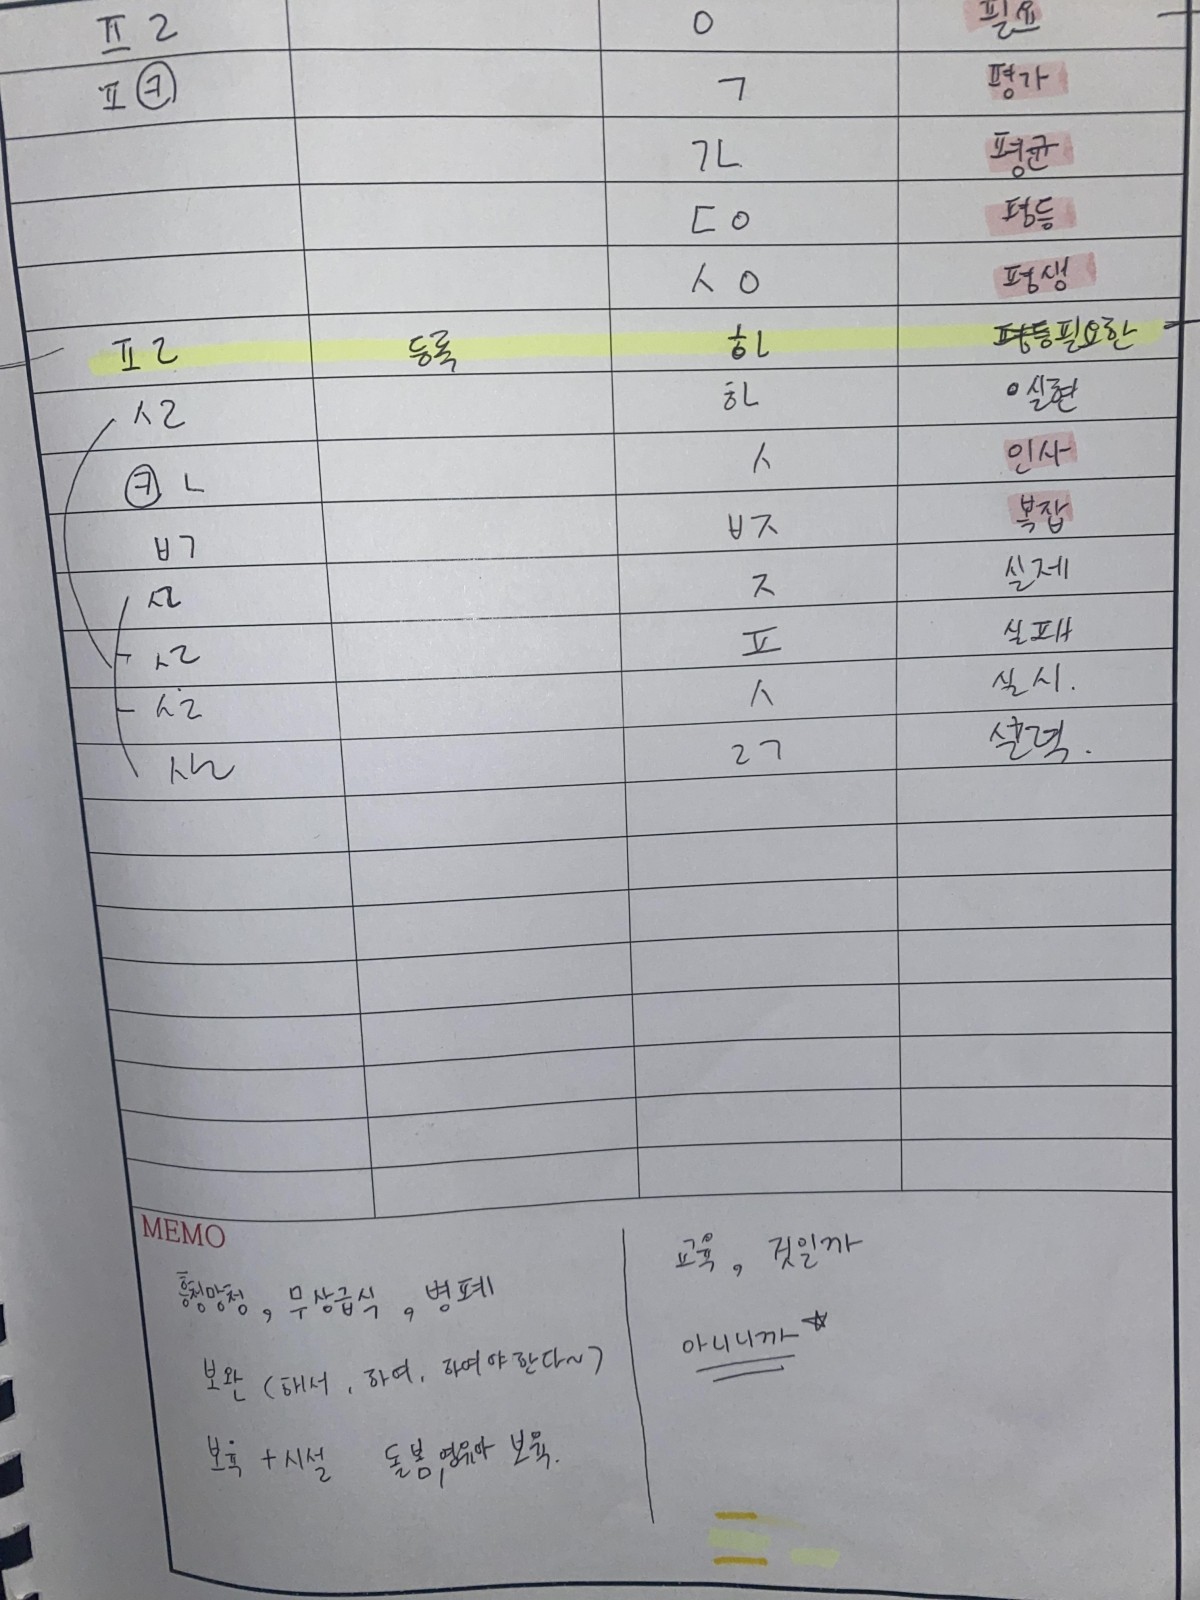 ㅍㄹ ㅇ 필요
ㅍ ㅋ ㄱ 평가
ㄱㄴ 평균
ㄷㅇ 평등
ㅅㅇ 평생
ㅍㄹ 등록 ㅎㄴ 필요한
ㅅㄹ ㅎㄴ 실현
ㅋ ㄴ ㅅ 인사
ㅂㄱ ㅂㅈ 복잡
ㅅㄹ ㅈ 실제
ㅅㄹ ㅍ 실패
ㅅㄹ ㅅ 실시.
ㅅㄹ ㄹㄱ 실력.
MEMO
흥청망청, 무상급식, 병폐
보완 (해서, 하여, 하여야 한다~)
보육 + 시설 돌봄, 영유아 보육.
교육, 것일까
아니니까 ☆